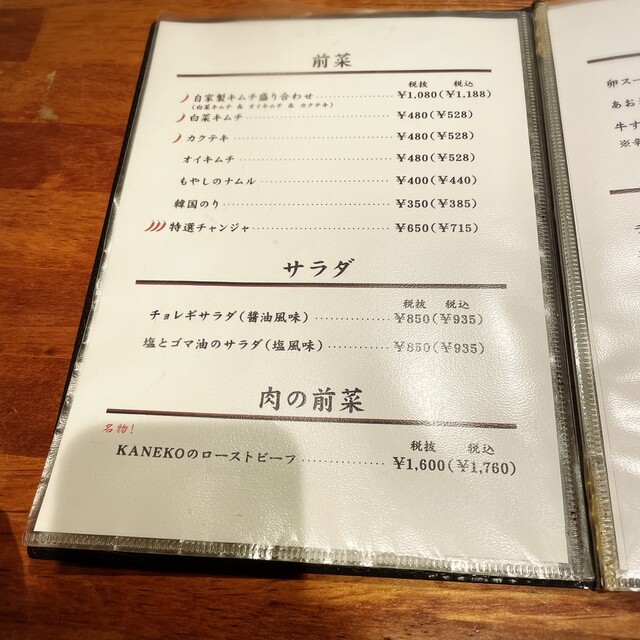 前菜
税抜 税込
自家製キムチ盛り合わせ ¥1,080(¥1,188)
(白菜キムチ & オイキムチ & カクテキ)
白菜キムチ ¥480(¥528)
カクテキ ¥480(¥528)
オイキムチ ¥480(¥528)
もやしのナムル ¥400(¥440)
韓国のり ¥350(¥385)
特選チャンジャ ¥650(¥715)
サラダ
税抜 税込
チョレギサラダ(醬油風味) ¥850(¥935)
塩とゴマ油のサラダ(塩風味) ¥850(¥935)
肉の前菜
名物!
税抜 税込
KANEKOのローストビーフ ¥1,600(¥1,760)
卵スー
あお
牛す